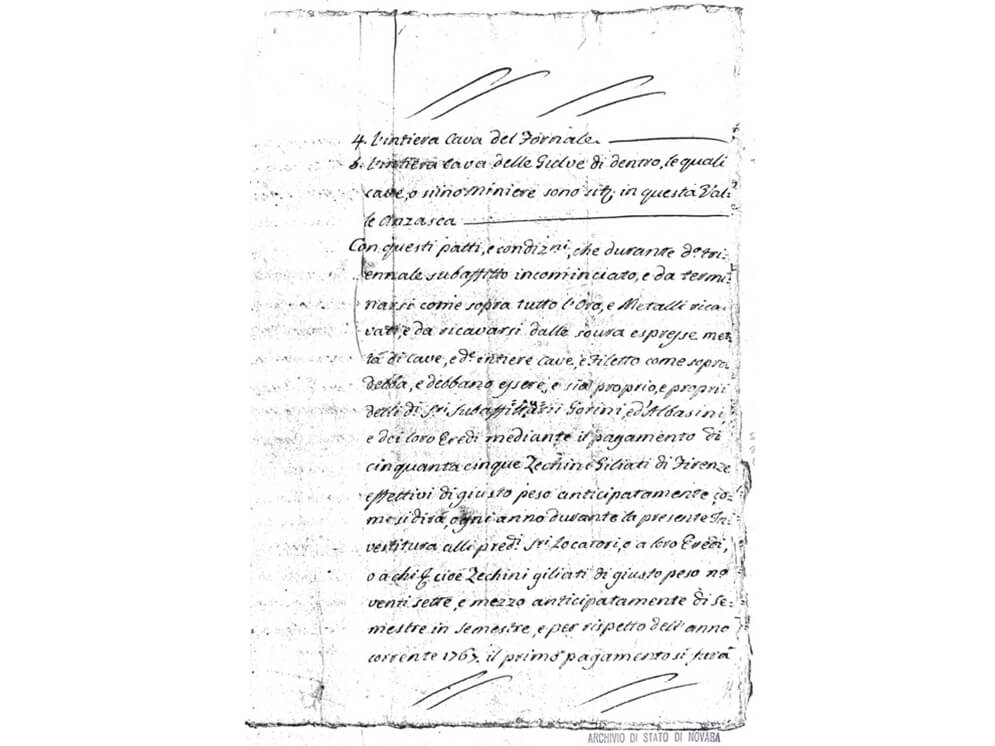 4. L'intiera Cava del Fornale.
5. L'intiera Cava delle Gulve di dentro, le quali
cave, o siino Miniere sono in questa Val:
le Anzasca
Con questi patti, e condiz.ni, che durante d.o tri:
ennale subaffitto incominciato, e da termi:
narsi come sopra tutto l'Oro, e Metalli rica:
vati, e da ricavarsi dalle soura espresse met:
tà di Cave, ed.e intiere Cave, e Filetto come sopra
debba, e debbano essere, e sia proprio, e proprii
delli d.i Sri. Subaffittarii Gorini, ed Albasini,
e dei loro Eredi mediante il pagamento di
cinquanta cinque Zechini Giliati di Firenze
effettivi di giusto peso anticipatamente, co:
me si dirà, ogni anno durante la presente In:
vestitura alli pred.i Sri. Locatori, o a loro Eredi,
o a chi cioè Zechini giliati di giusto peso
venti sette, e mezzo anticipatamente di Se:
mestre in Semestre, e per rispetto dell'anno
corrente 1767. il primo pagamento si farà
ARCHIVIO DI STATO DI NOVARA